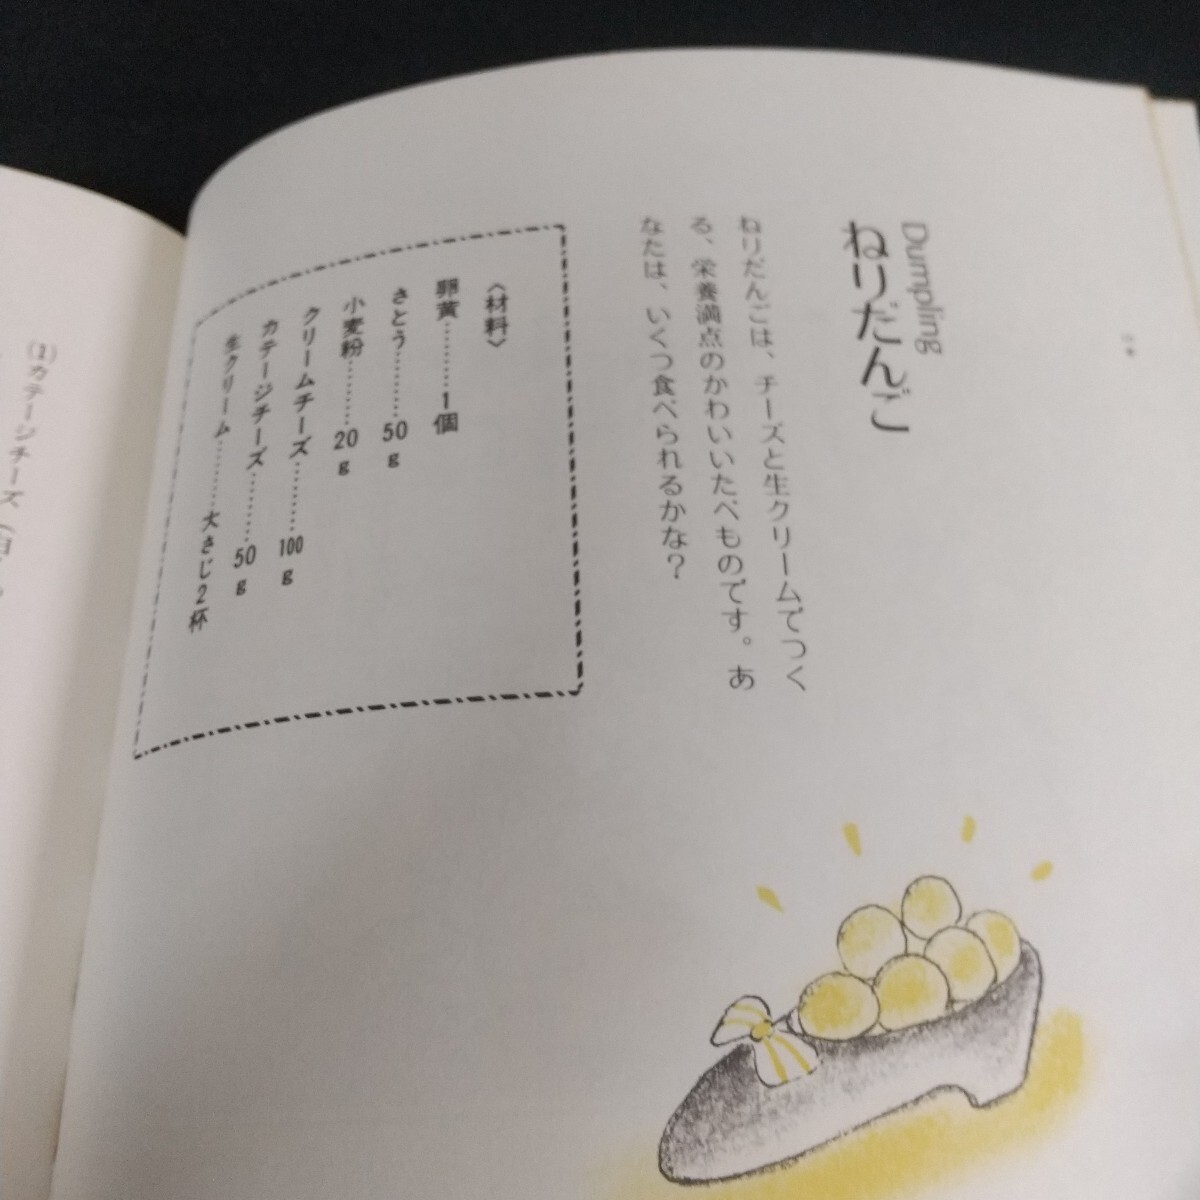 Dumpling
ねりだんご
ねりだんごは、チーズと生クリームでつく
る、栄養満点のかわいいたべものです。あ
なたは、いくつ食べられるかな？
〈材料〉
卵黄………1個
さとう………50g
小麦粉………20g
クリームチーズ………100g
カテージチーズ………50g
生クリーム………大さじ2杯
(1)カテージチーズ